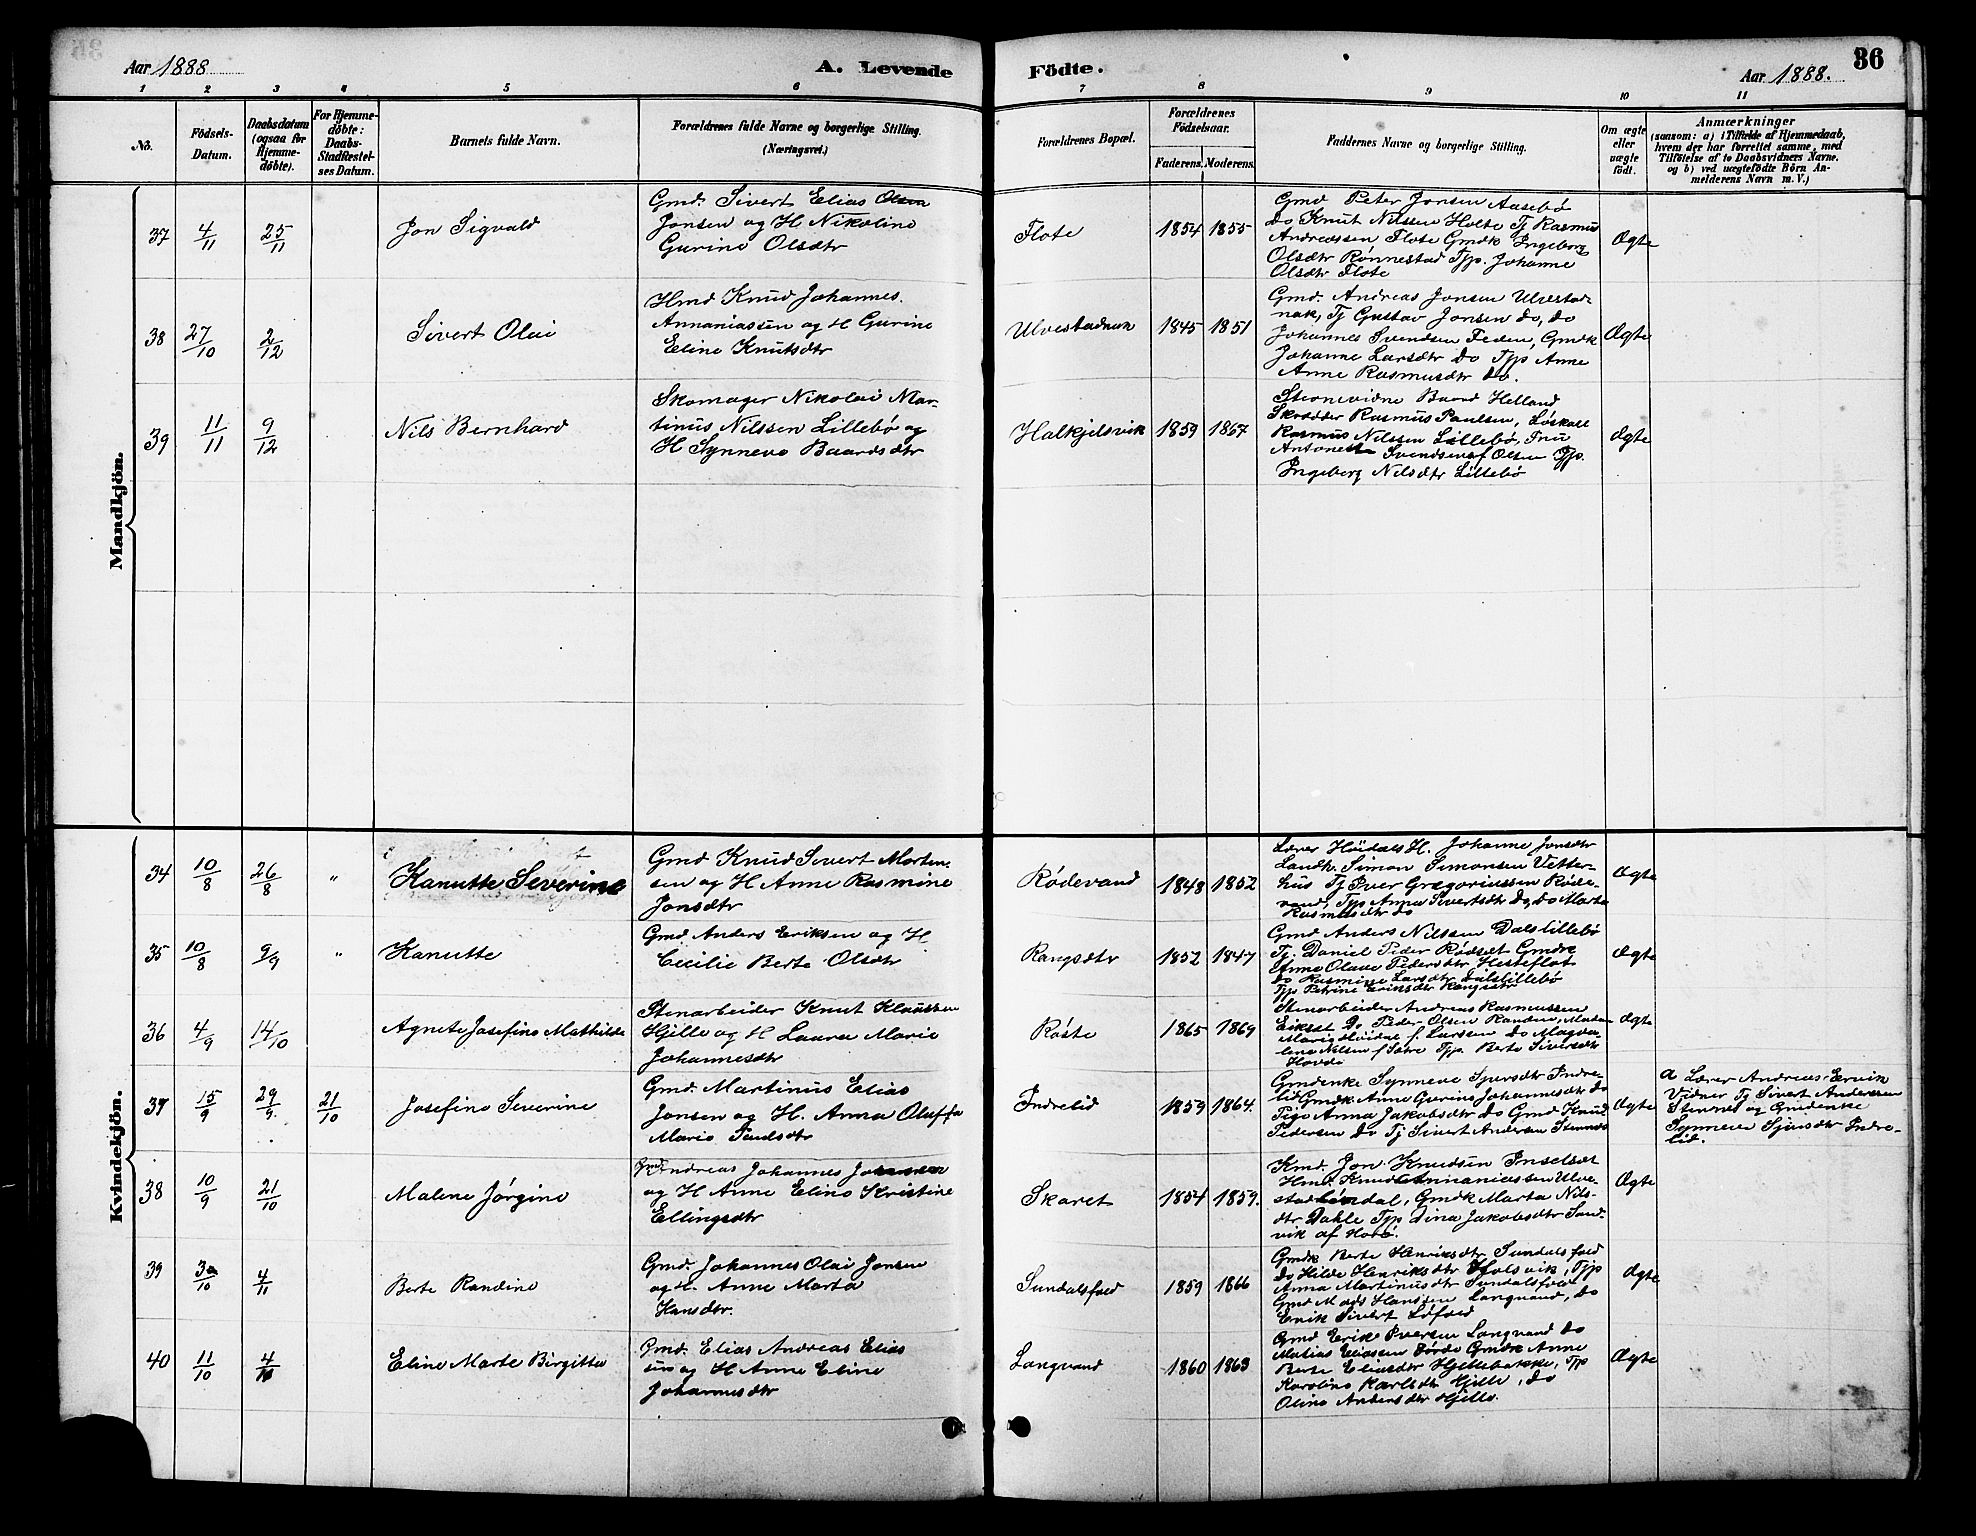 Aar 1888
A. Levende Födte.
Aar 1888.
36
1 2 3 4 5 6 7 8 9 10 11
No.
Födsels-
Datum.
Daabsdatum
(ogsaa for
Hjemme-
döbte).
For Hjemme-
döbte:
Daabs-
Stadfæstel-
ses Datum.
Barnets fulde Navn.
Forældrenes fulde Navne og borgerlige Stilling.
(Næringsvei.)
Forældrenes Bopæl.
Forældrenes
Födselsaar.
Faderens. Moderens.
Faddernes Navne og borgerlige Stilling.
Om ægte
eller
uægte
födt.
Anmærkninger
(saasom: a) i Tilfælde af Hjemmedaab,
hvem der har forrettet samme, med
Tilföielse af to Daabsvidners Navne.
og b) ved uægtefödte Börn An-
melderens Navn m. V.)
Mandkjön.
37
4/11
25/11
Jon Sigvald
Gmd. Sivert Elias Olsen
Jonsen og H Nikoline
Gurine Olsdtr
Flote
1854 1855
Gmd Peter Jonsen Aasebö
do Knut Nilssen Holte Tj Rasmus
Andreassen Flote Gmdk Ingeborg
Olsdtr Rönnestad Tjp. Johanne
Olsdtr Flote
Ægte
38
27/10
2/12
Sivert Olai
Hmd Knud Johannes.
Annaniassen og H Gurine
Eline Knutsdtr
Ulvestadnak
1845 1851
Gmd. Andreas Jonsen Ulvestad
nak, Tj Gustav Jonsen do, do
Johannes Svendsen Feden, Gmdk
Johanne Larsdtr do Tjp Anne
Anne Rasmusdtr do.
Ægte
39
11/11
9/12
Nils Bernhard
Skomager Nikolai Mar-
tinus Nilssen Lillebö og
H Synneve Baardsdtr
Halkjelsvik
1859 1867
Stevnevidne Baard Helland
Skrædder Rasmus Paulsen, Löskall
Rasmus Nilssen Lillebö, Fru
Antonette Svendsen af Olsen Tjp.
Ingeborg Nilsdtr Lillebö
Ægte
Kvindekjön.
34
10/8
26/8
"
Kanutte Severine
Gmd Knud Sivert Morten-
sen og H Anne Rasmine
Jonsdtr
Rödevand
1848 1852
Lærer Höidals H. Johanne Jonsdtr
Landh. Simon Simonsen Vetter-
hus Tj Iver Gregoriussen Röde-
vand, Tjp Anna Sivertsdtr do, do Marta
Rasmusdtr do
Ægte
35
10/8
9/9
"
Kanutte
Gmd Anders Eriksen og H
Cecilie Berte Olsdtr
Rangsdtr
1852 1847
Gmd Anders Nilssen Dalslillebö
Tj. Daniel Peder Rödset Gmdk
Anne Olave Pedersdtr Hesteflot
do Rasmine Larsdtr Dalslillebö
Tjp Petrine Eriksdtr Rangsdtr
Ægte
36
4/9
14/10
Agnete Josefine Mathilde
Stenarbeider Knut Klaussen
Hjelle og H Laura Marie
Johannesdtr
Röste
1865 1869
Stenarbeider Andreas Rasmussen
Eikset Do Peder Olsen Randen, Madam
Marie Hvidne f. Larssen do Magda
lene Nilsen f Sætre Tjp. Berte Siversdtr
Hovde
Ægte
37
15/9
29/9.
21/10
Josefine Severine
Gmd. Martinus Elias
Jonsen og H. Anna Oluffa
Marie Knudsdtr
Indrelid
1859 1864.
Gmdenke Synneve Sjursdtr Indre-
lid Gmdk Anne Gurine Johannesdtr do
Pige Anna Jakobsdtr do Gmd Knud
Pedersen do Tj Sivert Andersen Stennes
Ægte
a Lærer Andreas Ervik
Vidner Tj Sivert Andersen
Stennes og Gmdenke
Synneve Sjursdtr Indre-
lid.
38
10/9
21/10
Malene Jörgine
Gmd Andreas Johannes Johannesen
og H Anne Eline Kristine
Ellingsdtr
Skaret
1854 1859.
Kmd. Jon Knudsen Inselset
Hmd. Knud Annaniassen Ulve-
stad dal, Gmdk Marta Nils-
dtr Dahle Tjp Dina Jakobsdtr Sand-
vik af Hovd.
Ægte
39
30/10
4/11
Berte Randine
Gmd. Johannes Olai Jonsen
og H. Anne Marta
Hansdtr.
Sundalsfoed
1859 1866
Gmdk Berte Henriksdtr Sundalsfoed
do Hilde Henriksdtr Holsvik, Tjp
Anna Martinusdtr Sundalsfoed
Gmd Mads Hanssen Langvand, do
Enik Sivert Löfoed
Ægte
40
11/10
4/11
Eline Marte Birgitte
Gmd. Elias Andreas Elias
sen og H Anne Eline
Johannesdtr
Langvand
1860 1863
Gmd Erik Iversen Langvand do
Matias Eliassen Börde Gmdk Anne
Berte Eliasdtr Hjellebakke, Tjp
Karoline Karlsdtr Hjelle, do
Oline Andersdtr Hjelle.
Ægte